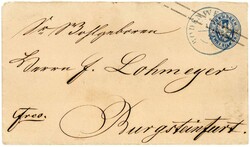 Sr. Wohlgeboren
Herrn F. Lohmeyer
fro.
Burgsteinfurt.